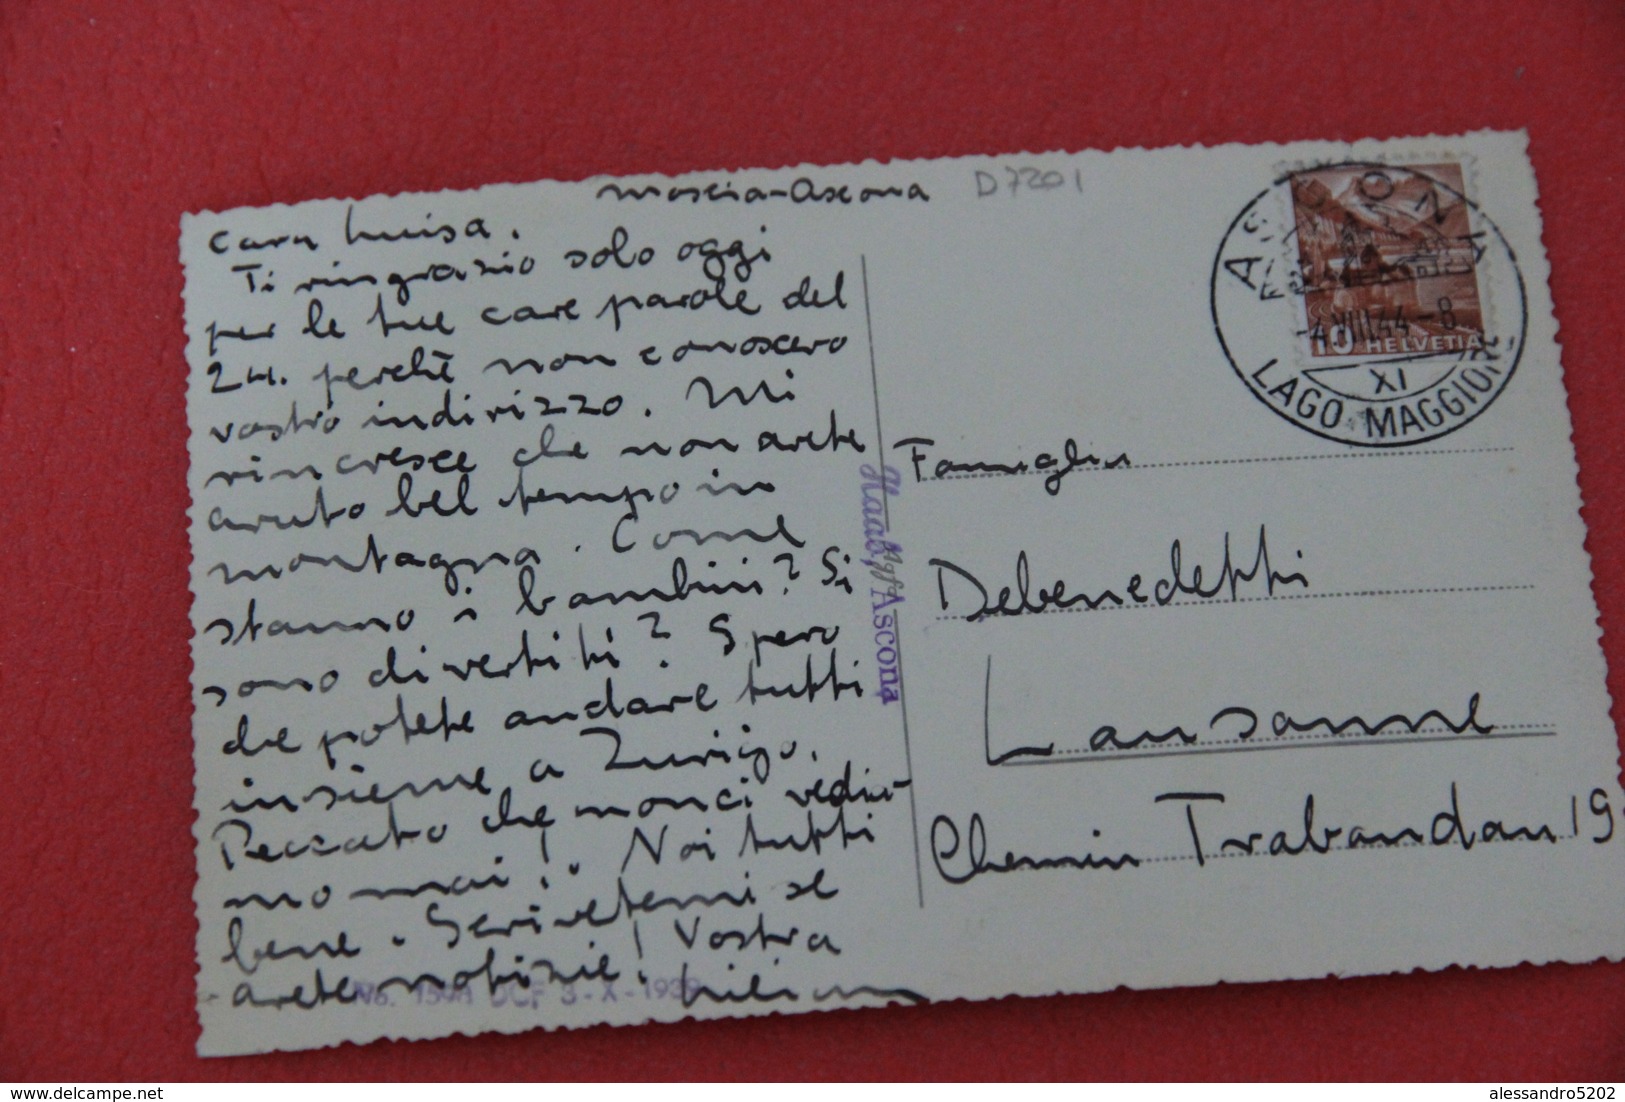 Moscia-Ascona
D7201
Cara Luisa.
Ti ringrazio solo oggi
per le tue care parole del
24. perchè non conoscevo
vostro indirizzo. Mi
rincresce che non avete
avuto bel tempo in
montagna. Come
stanno i bambini? Si
sono divertiti? Spero
che potete andare tutti
insieme a Zurigo.
Peccato che non ci vedia-
mo mai! Noi tutti
bene. Scrivetemi se
avete notizie! Vostra
Lilian
No. 1594 DCF 3-X-1939
Haab, Ascona
ASCONA
4.VIII.44-8
XI
LAGO MAGGIORE
10 HELVETIA
Famiglia
Debenedetti
Lausanne
Chemin Trabandan 19
delcampe.net
alessandro5202